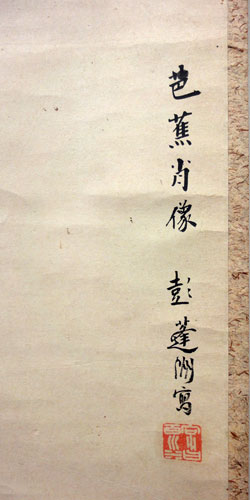 芭蕉肖像 彭蓬洲寫